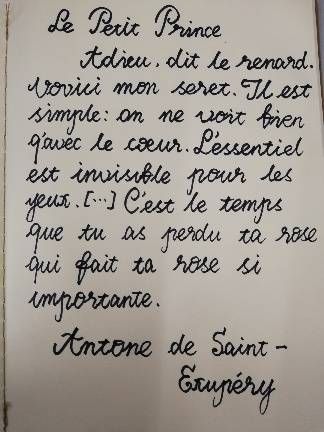 Le Petit Prince
Adieu, dit le renard.
Vovici mon seret. Il est
simple: on ne voit bien
q'avec le cœur. L'essentiel
est invisible pour les
yeux. [...] C'est le temps
que tu as perdu ta rose
qui fait ta rose si
importante.
Antone de Saint-
Exupéry